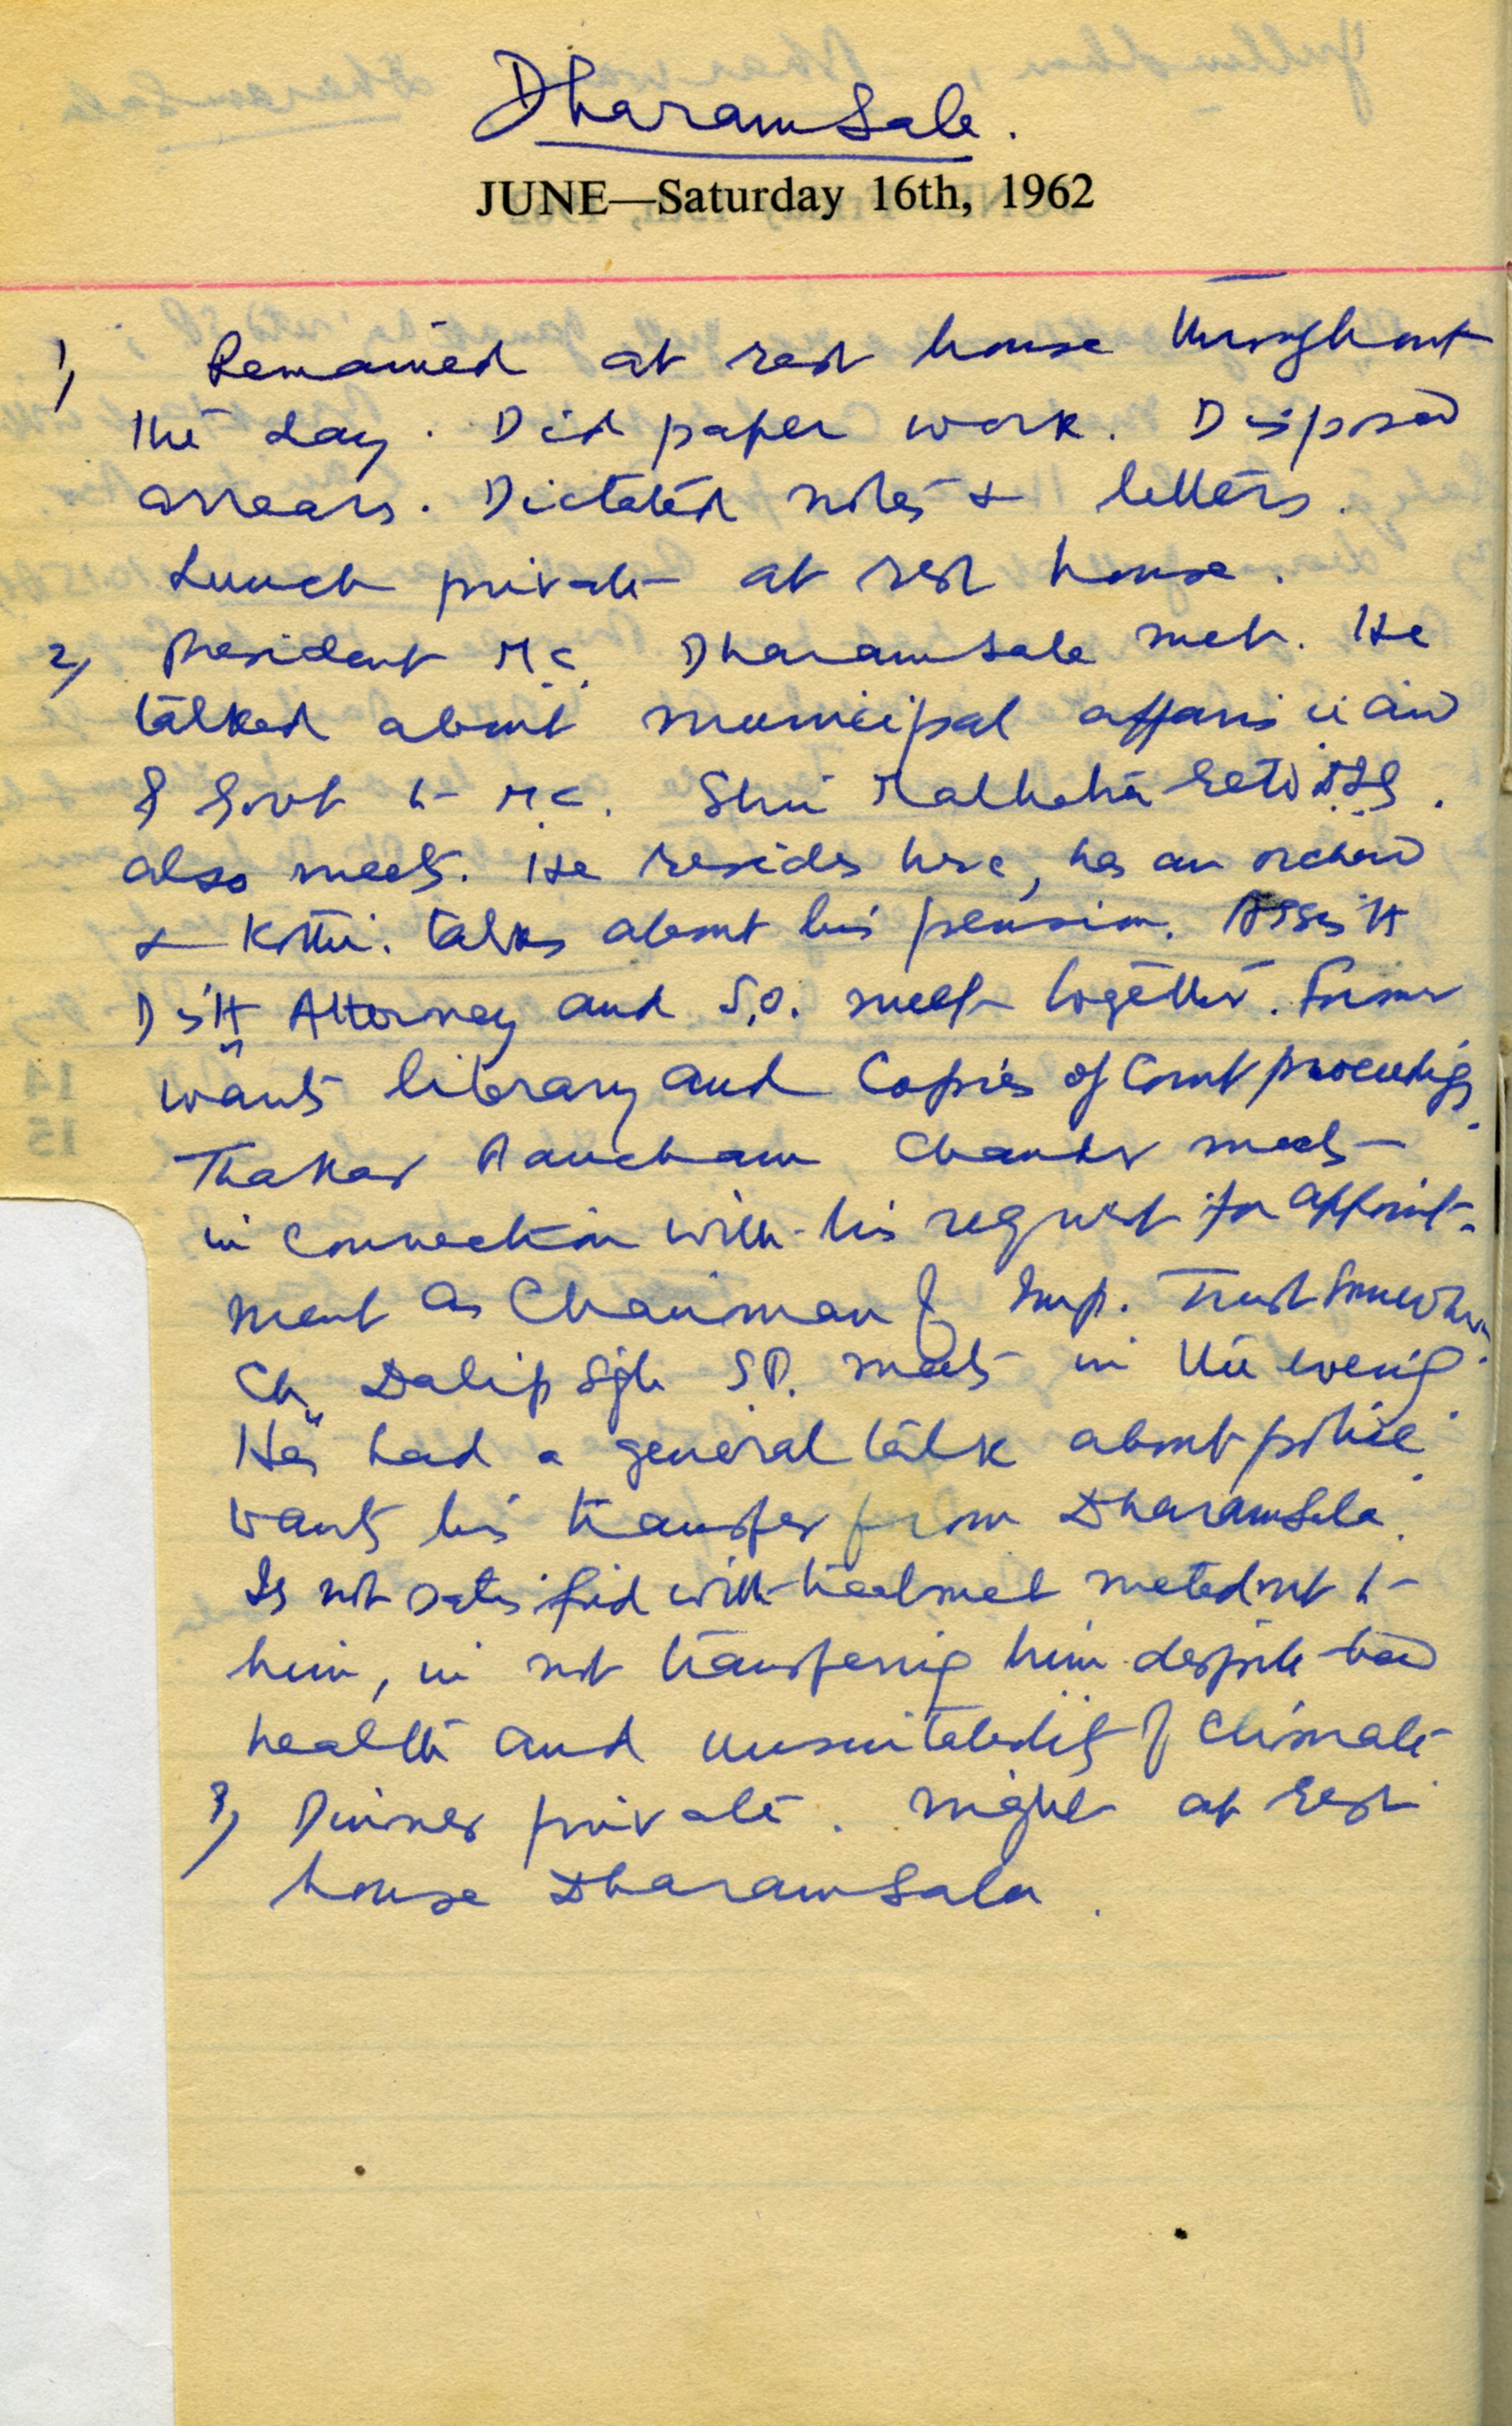 Dharamsala.
JUNE—Saturday 16th, 1962
1) Remained at rest house throughout
the day. Did paper work. Disposed
arrears. Dictated notes & letters.
Lunch private at rest house.
2) President M.C. Dharamsala met. He
talked about municipal affairs
of Govt to M.C. Shri Malhotra retd
also meets. He resides here, has an orchard
& Kothi. talks about his pension. Asstt
Distt Attorney and S.O. meet together. Former
wants library and Copies of Court proceedings.
Thakar Pancham Chander meets
in connection with his request for appoint-
ment as Chairman of Imp. Trust somewhere.
Ch. Dalip Sgh S.P. meets in the evening.
He had a general talk about police
wants his transfer from Dharamsala.
Is not satisfied with treatmet meted out to
him, in not transferring him despite bad
health and unsuitability of climate.
3) Dinner private. Night at rest
house Dharamsala.